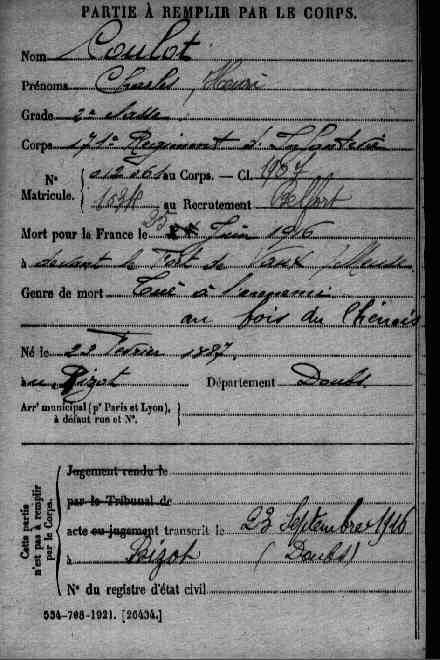 PARTIE À REMPLIR PAR LE CORPS.
Nom Coulot
Prénoms Charles Henri
Grade 2e classe
Corps 171e Régiment d'Infanterie
N° 012 061 au Corps. — Cl. 1907
Matricule. au Recrutement Belfort
Mort pour la France le 25 Juin 1916
à devant le Fort de Vaux Meuse
Genre de mort Tué à l'ennemi
au bois du Chénois
Né le 23 Février 1887.
au Bizot Département Doubs
Arrt municipal (pr Paris et Lyon),
à défaut rue et N°.
Cette partie
n'est pas à remplir
par le Corps.
Jugement rendu le
par le Tribunal de
acte ou jugement transcrit le 23 Septembre 1916
à Bizot (Doubs)
N° du registre d'état civil
534-708-1921. [26434.]